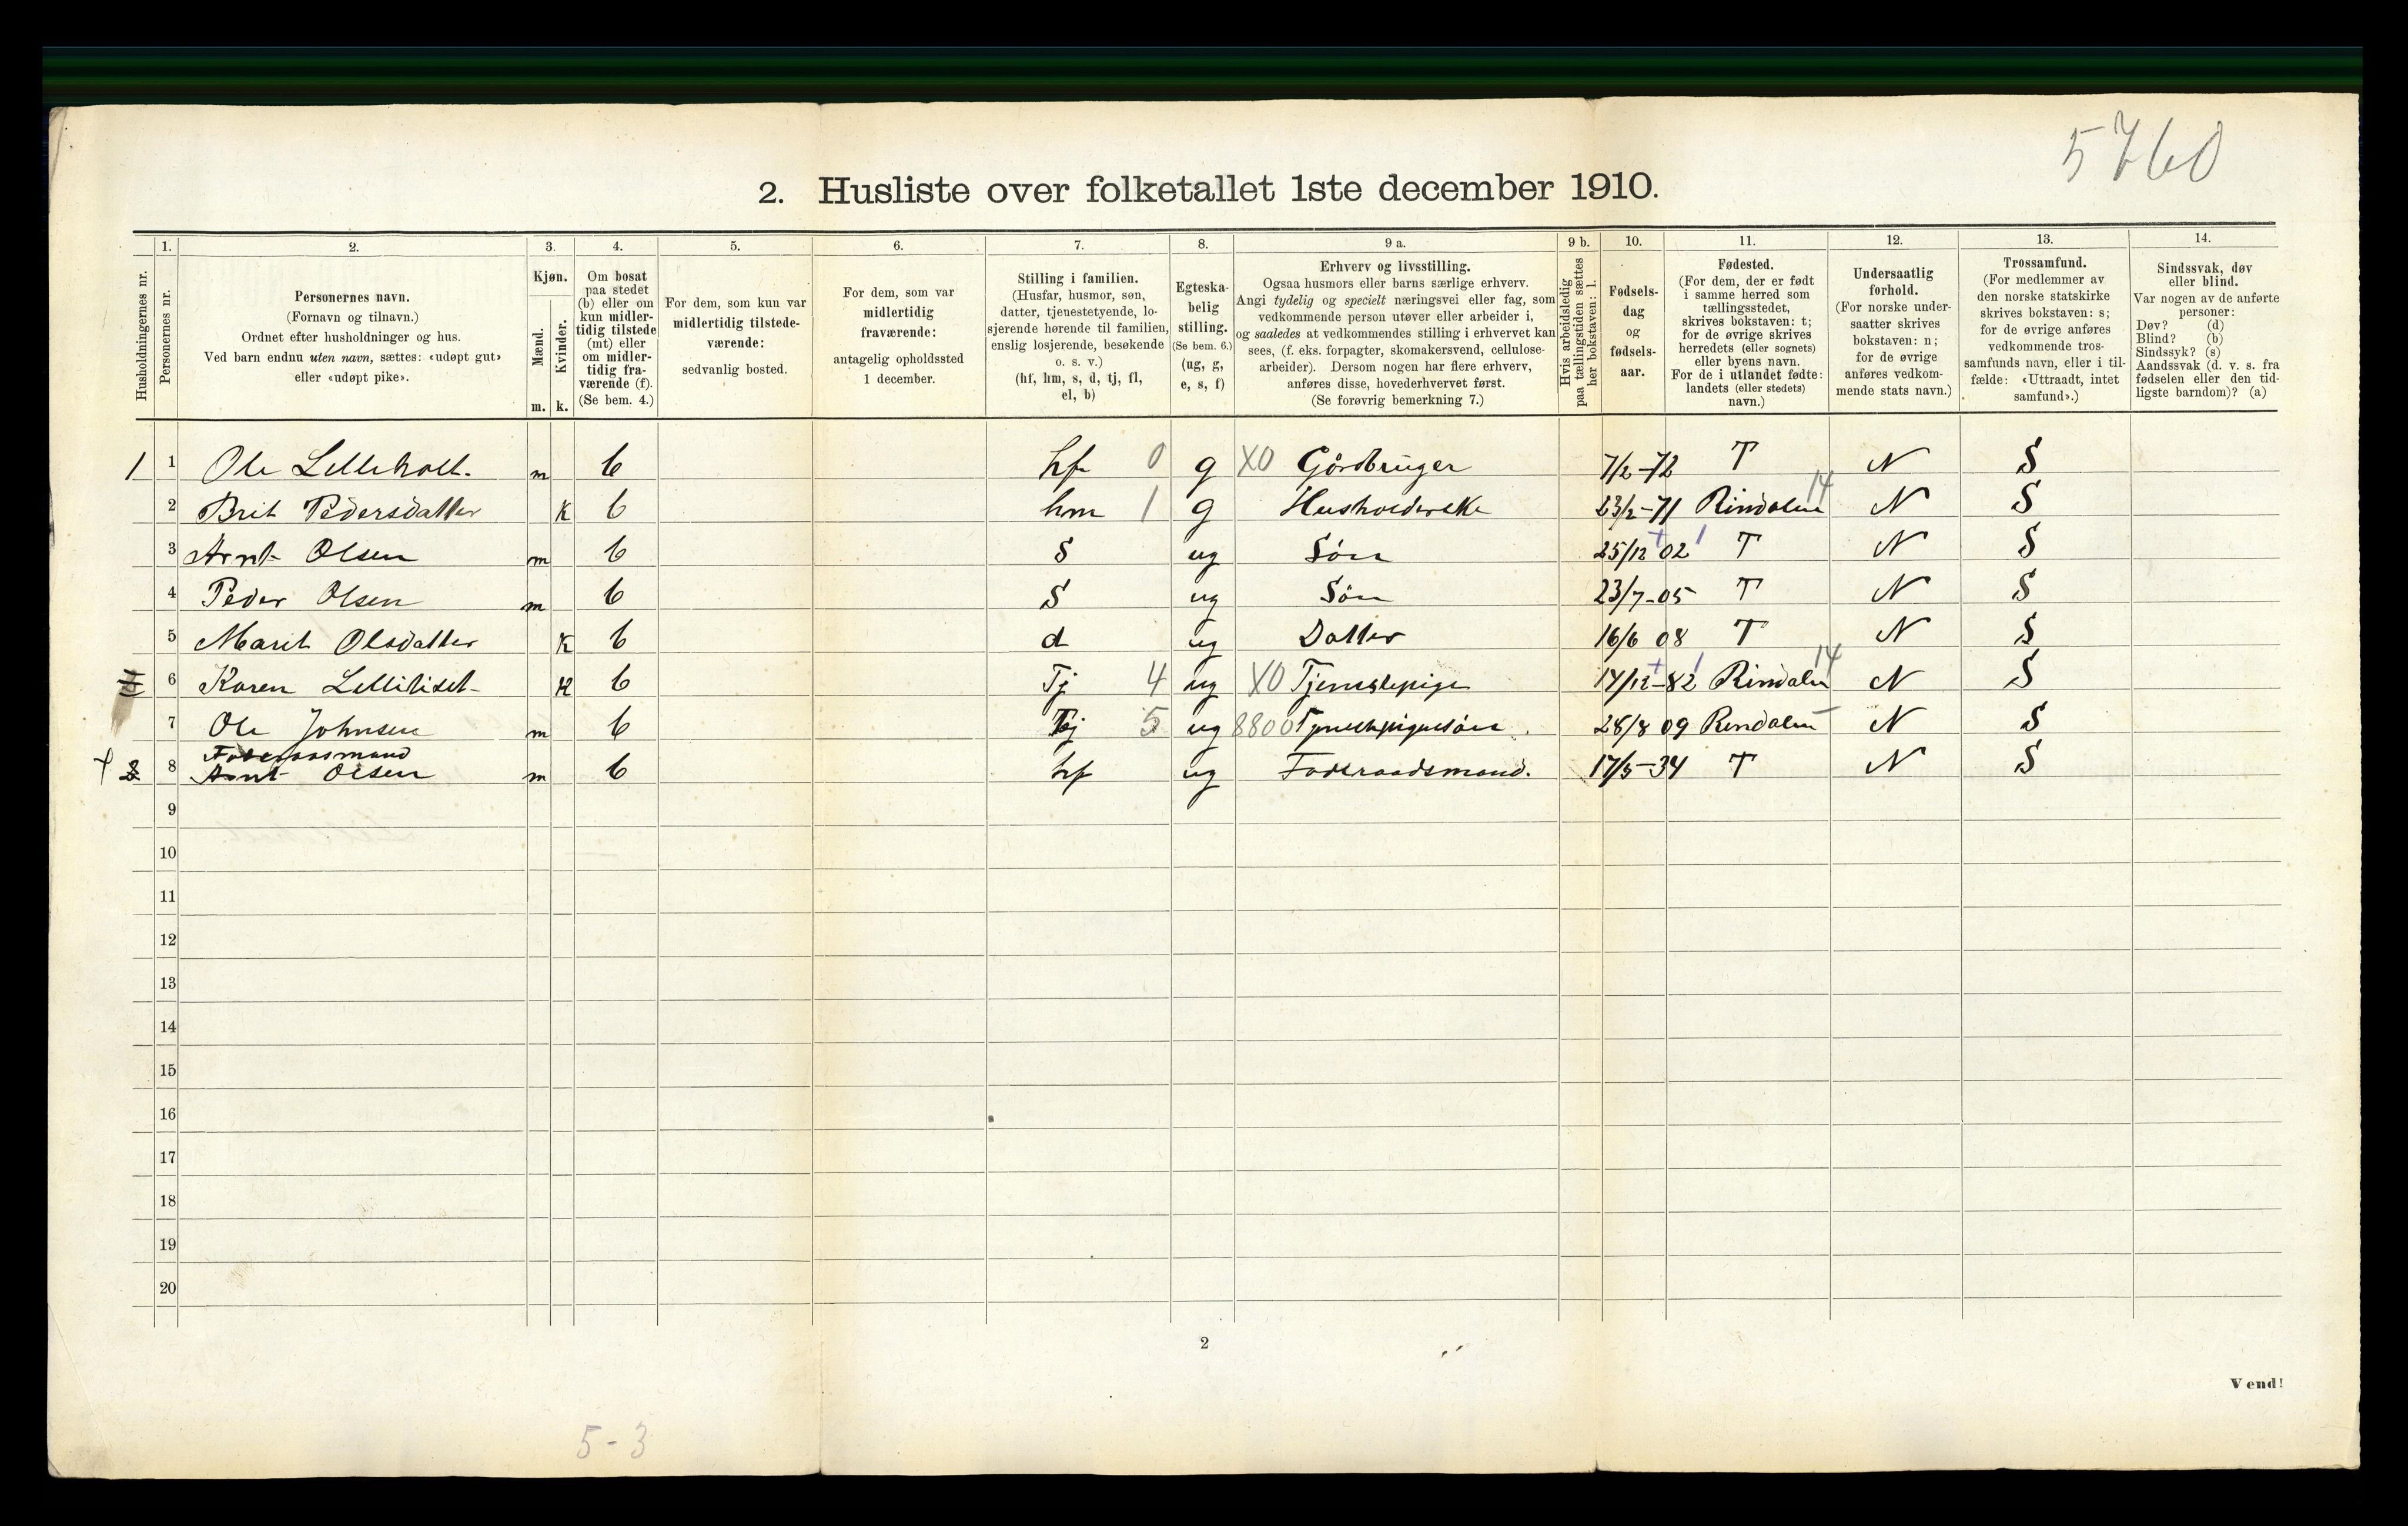 5760
2. Husliste over folketallet 1ste december 1910.
1. 2. 3. 4. 5. 6. 7. 8. 9 a. 9 b. 10. 11. 12. 13. 14.
Husholdningernes nr.
Personernes nr.
Personernes navn.
(Fornavn og tilnavn.)
Ordnet efter husholdninger og hus.
Ved barn endnu uten navn, sættes: «udøpt gut»
eller «udøpt pike».
Kjøn.
Mænd.
Kvinder.
m. k.
Om bosat
paa stedet
(b) eller om
kun midler-
tidig tilstede
(mt) eller
om midler-
tidig fra-
værende (f).
(Se bem. 4.)
For dem, som kun var
midlertidig tilstede-
værende:
sedvanlig bosted.
For dem, som var
midlertidig
fraværende:
antagelig opholdssted
1 december.
Stilling i familien.
(Husfar, husmor, søn,
datter, tjenestetyende, lo-
sjerende hørende til familien,
enslig losjerende, besøkende
o. s. v.)
(hf, hm, s, d, tj, fl,
el, b)
Egteska-
belig
stilling.
(Se bem. 6.)
(ug, g,
e, s, f)
Erhverv og livsstilling.
Ogsaa husmors eller barns særlige erhverv.
Angi tydelig og specielt næringsvei eller fag, som
vedkommende person utøver eller arbeider i,
og saaledes at vedkommendes stilling i erhvervet kan
sees, (f. eks. forpagter, skomakersvend, cellulose-
arbeider). Dersom nogen har flere erhverv,
anføres disse, hovederhvervet først.
(Se forøvrig bemerkning 7.)
Hvis arbeidsledig
paa tællingstiden sættes
her bokstaven: l.
Fødsels-
dag
og
fødsels-
aar.
Fødested.
(For dem, der er født
i samme herred som
tællingsstedet,
skrives bokstaven: t;
for de øvrige skrives
herredets (eller sognets)
eller byens navn.
For de i utlandet fødte:
landets (eller stedets)
navn.)
Undersaatlig
forhold.
(For norske under-
saatter skrives
bokstaven: n;
for de øvrige
anføres vedkom-
mende stats navn.)
Trossamfund.
(For medlemmer av
den norske statskirke
skrives bokstaven: s;
for de øvrige anføres
vedkommende tros-
samfunds navn, eller i til-
fælde: «Uttraadt, intet
samfund».)
Sindssvak, døv
eller blind.
Var nogen av de anførte
personer:
Døv? (d)
Blind? (b)
Sindssyk? (s)
Aandssvak (d. v. s. fra
fødselen eller den tid-
ligste barndom)? (a)
1 1 Ole Lilleholt. m b hf 0 g X0 Gårdbruger 7/2-72 T N S
2 Brit Pedersdatter k b hm 1 g 23/2-71 Rindalen 14 N S
3 Arnt Olsen m b S ug Sön 25/12 02 T N S
4 Peder Olsen m b S ug Sön 23/7-05 T N S
5 Marit Olsdatter k b d ug Datter 16/6 08 T N S
6 Karen k b Tj 4 ug X0 Tjenstepige 14/12-82 Rindalen 14 N S
7 Ole Johnsen m b Tj 5 ug 8800 28/8 09 Rindalen N S
Foderaasmand
2 8 Arnt Olsen m b hf ug Foderaadsmand. 17/5-34 T N S
9
10
11
12
13
14
15
16
17
18
19
20
2
Vend!
5-3